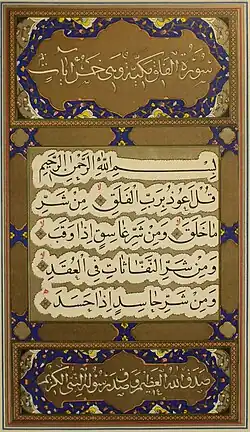 سورة الفلق مكية وهي خمس آيات
بِسْمِ اللَّهِ الرَّحْمَنِ الرَّحِيمِ
قُلْ أَعُوذُ بِرَبِّ الْفَلَقِ مِنْ شَرِّ
مَا خَلَقَ وَمِنْ شَرِّ غَاسِقٍ إِذَا وَقَبَ
وَمِنْ شَرِّ النَّفَّاثَاتِ فِي الْعُقَدِ
وَمِنْ شَرِّ حَاسِدٍ إِذَا حَسَدَ
صدق الله العظيم وصدق رسوله النبي الكريم